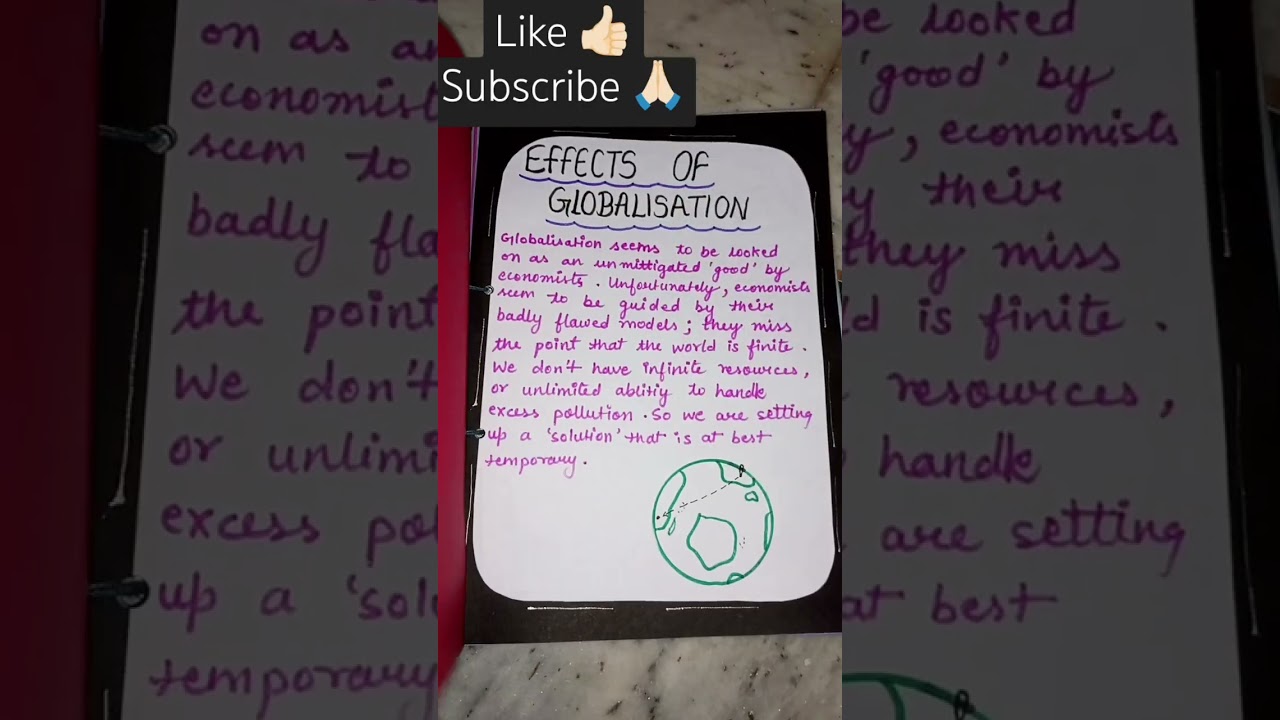 Like 👍🏻
Subscribe 🙏🏻
EFFECTS OF
GLOBALISATION
Globalisation seems to be looked
on as an unmittigated 'good' by
economists. Unfortunately, economists
seem to be guided by their
badly flawed models; they miss
the point that the world is finite.
We don't have infinite resources,
or unlimited ablitiy to handle
excess pollution. So we are setting
up a 'solution' that is at best
temporary.